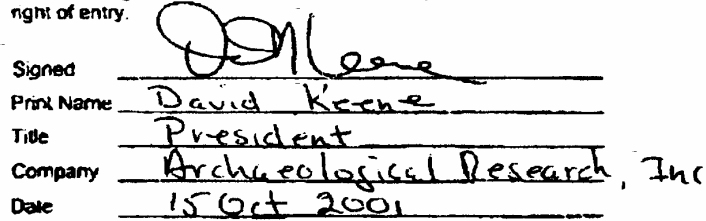 right of entry.
Signed D Keene
Print Name David Keene
Title President
Company Archaeological Research, Inc
Date 15 Oct 2001